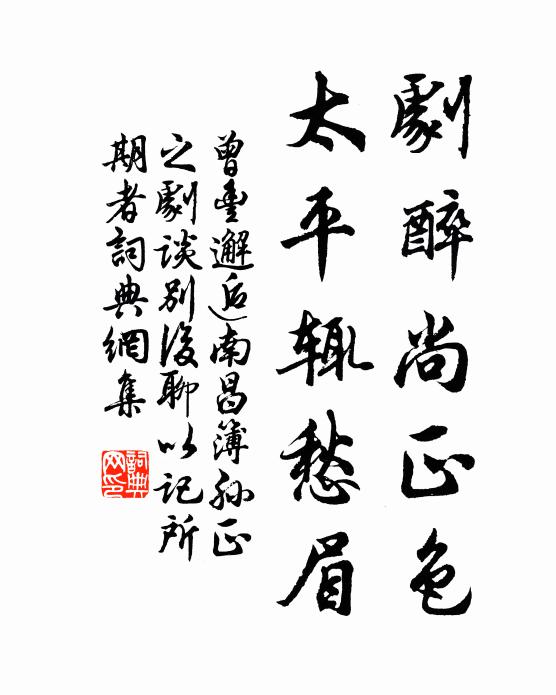 劇醉尚正色
太平辄愁眉
曾豐邂逅南昌簿孫正
之劇談别後聊以記所
期者詞典網集
詞典
网印